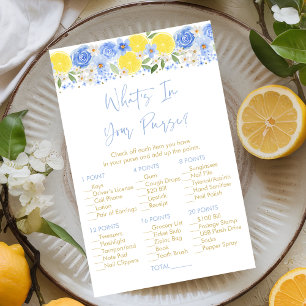 What's In
Your Purse?
Check off each item you have
in your purse and add up the points.
1 POINT
Keys
Driver's License
Cell Phone
Lotion
Pair of Earrings
4 POINTS
Gum
Cough Drops
$20 Bill
Lipstick
Band-Aid
8 POINTS
Sunglasses
Nail File
Hand Sanitizer
Nail Polish
12 POINTS
Tweezers
Flashlight
Tampon/Pad
Note Pad
Nail Clippers
16 POINTS
Grocery List
Ticket Stub
Sewing Kit
Book
Tooth Brush
20 POINTS
$100 Bill
Postage Stamp
USB Flash Drive
Socks
Pepper Spray
TOTAL